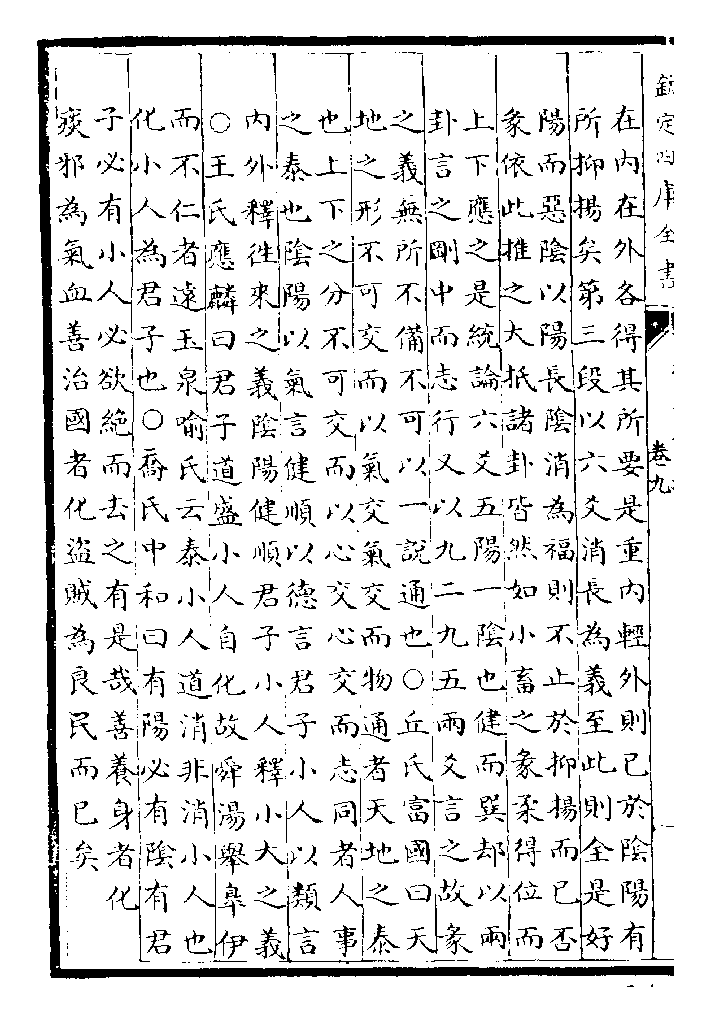 欽定四庫全書
卷九
在内在外各得其所要是重内輕外則已於陰陽有
所抑揚矣第三段以六爻消長為義至此則全是好
陽而惡陰以陽長陰消為福則不止於抑揚而已否
彖依此推之大抵諸卦皆然如小畜之彖柔得位而
上下應之是統論六爻五陽一陰也健而巽却以兩
卦言之剛中而志行又以九二九五兩爻言之故彖
之義無所不備不可以一說通也○丘氏富國曰天
地之形不可交而以氣交氣交而物通者天地之泰
也上下之分不可交而以心交心交而志同者人事
之泰也陰陽以氣言健順以德言君子小人以類言
内外釋徃來之義陰陽健順君子小人釋小大之義
○王氏應麟曰君子道盛小人自化故舜湯舉臯伊
而不仁者遠玉泉喻氏云泰小人道消非消小人也
化小人為君子也○喬氏中和曰有陽必有陰有君
子必有小人必欲絶而去之有是哉善養身者化
痰邪為氣血善治國者化盜賊為良民而已矣